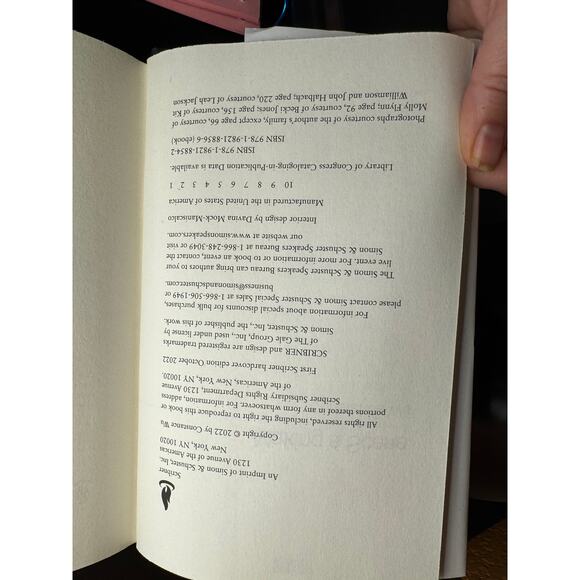 Scribner
An Imprint of Simon & Schuster, Inc.
1230 Avenue of the Americas
New York, NY 10020
Copyright © 2022 by Constance Wu
All rights reserved, including the right to reproduce this book or
portions thereof in any form whatsoever. For information, address
Scribner Subsidiary Rights Department, 1230 Avenue
of the Americas, New York, NY 10020.
First Scribner hardcover edition October 2022
SCRIBNER and design are registered trademarks
of The Gale Group, Inc., used under license by
Simon & Schuster, Inc., the publisher of this work.
For information about special discounts for bulk purchases,
please contact Simon & Schuster Special Sales at 1-866-506-1949 or
business@simonandschuster.com.
The Simon & Schuster Speakers Bureau can bring authors to your
live event. For more information or to book an event, contact the
Simon & Schuster Speakers Bureau at 1-866-248-3049 or visit
our website at www.simonspeakers.com.
Interior design by Davina Mock-Maniscalco
Manufactured in the United States of America
10 9 8 7 6 5 4 3 2 1
Library of Congress Cataloging-in-Publication Data is available.
ISBN 978-1-9821-8854-2
ISBN 978-1-9821-8856-6 (ebook)
Photographs courtesy of the author's family, except page 66, courtesy of
Molly Flynn; page 92, courtesy of Becki Jones; page 156, courtesy of Kit
Williamson and John Halbach; page 220, courtesy of Leah Jackson